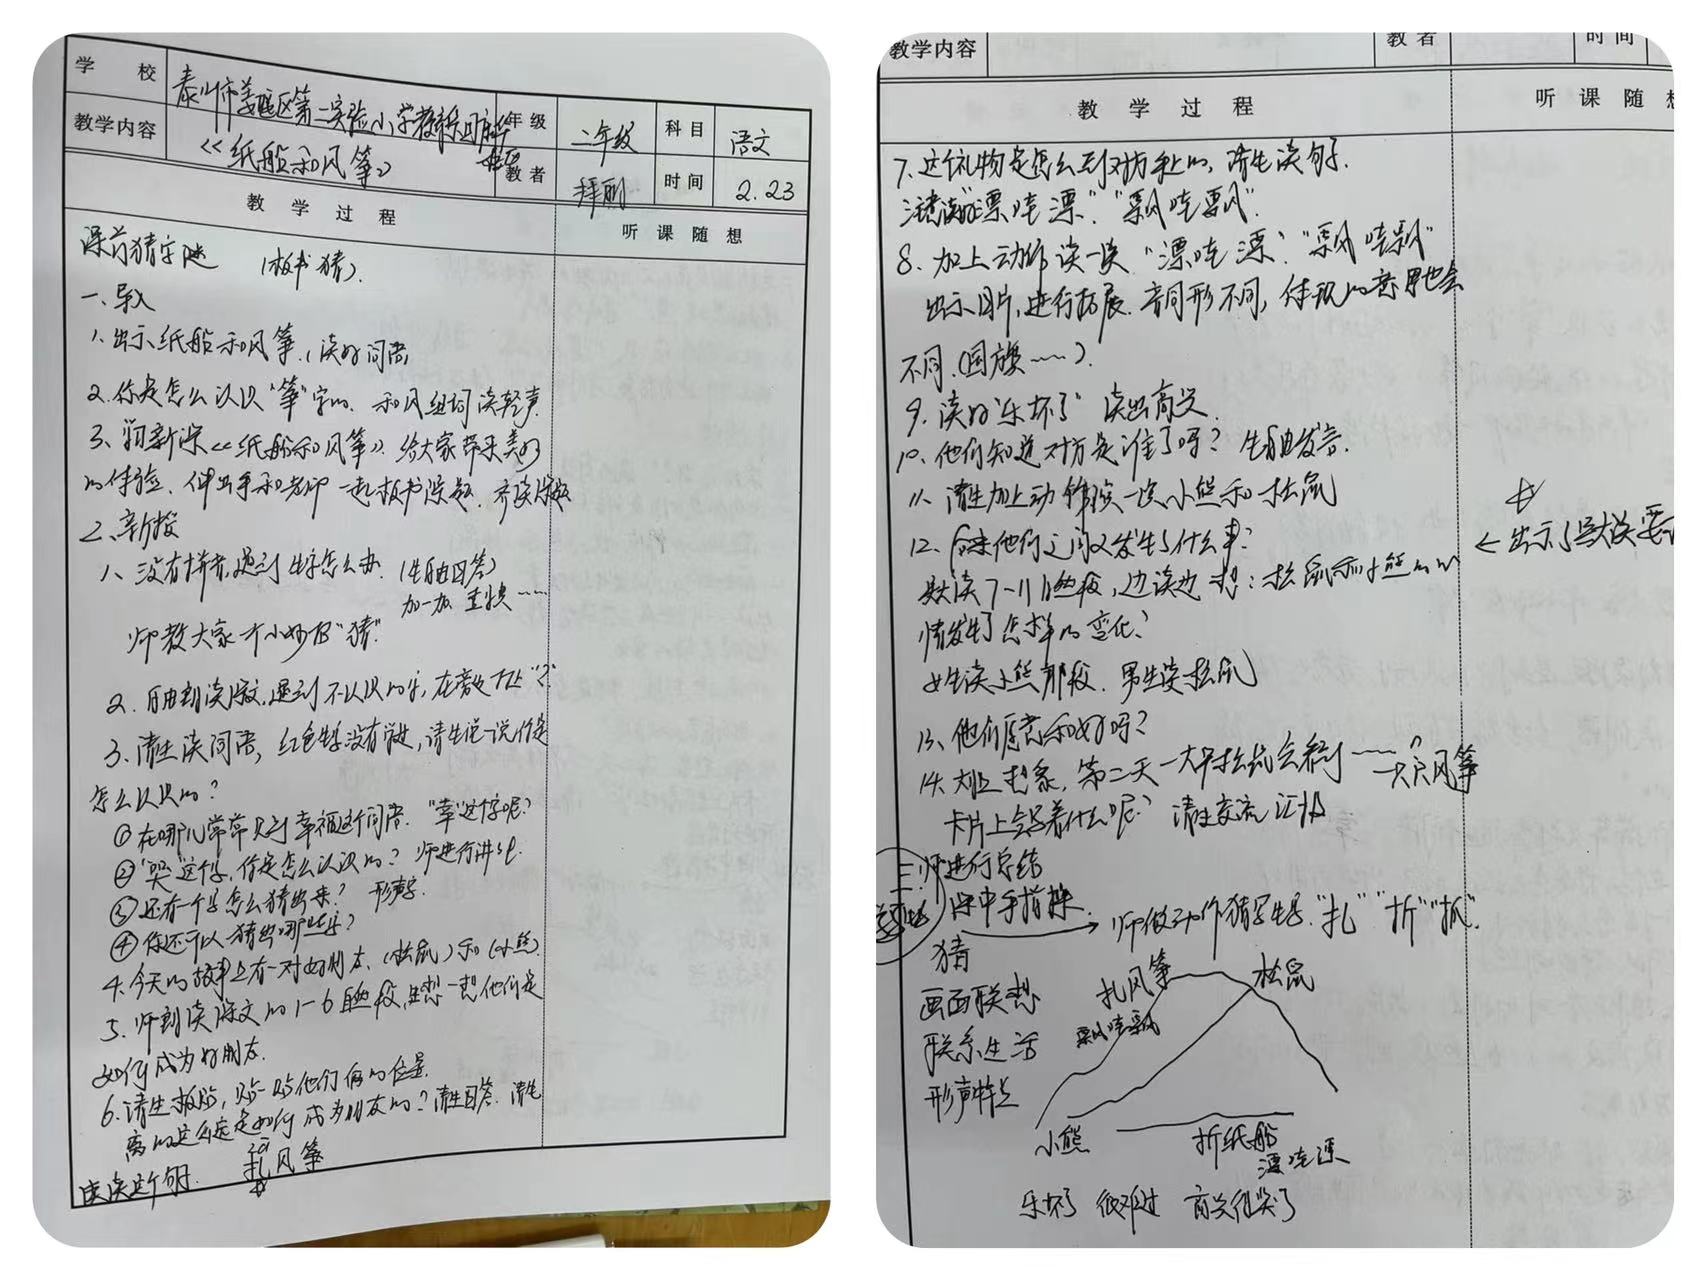 学 校
泰州市姜堰区第二实验小学教育集团
年级
二年级
科目
语文
教学内容
《纸船和风筝》
教者
时间
2.23
教学过程
听课随想
课前猜字谜 (板书 猜).
一、导入
1、出示纸船和风筝、(读好词语
2、你是怎么认识"筝"字的、和风组词读轻声.
3、新课《纸船和风筝》给大家带来美好
的体验、伸出手和老师一起板书课题 齐读课题
二、新授
1、没有拼音,遇到生字怎么办.(生自由回答)
加一加 查换……
师教大家一个小妙招"猜".
2、自由朗读课文,遇到不认识的字,在旁边打上"?"
3、请生读词语, 红色生字没有学过,请生说一说你是
怎么认识的?
①在哪儿常常见到幸福这个词语. "幸"这个字呢?
②"哭"这个字,你是怎么认识的? 师进行讲解.
③还有一个字怎么猜出来? 形声字.
④你还可以猜出哪些字?
4、今天的故事上有一对好朋友、(松鼠)和(小熊).
5、师朗读课文的1-6自然段,生想一想他们是
如何成为好朋友.
6、请生板贴,贴一贴他们俩的位置.
离的这么远是如何成为朋友的?请生回答. 请生
读读这个句.
扎风筝
教学内容
教者
时间
教学过程
听课随想
7、这个礼物是怎么到对方手上的, 请生读句子.
"漂哇漂" "飘哇飘".
8、加上动作读一读 "漂哇漂" "飘哇飘"
出示图片,进行拓展. 音同形不同, 体现的意思也会
不同.(国旗……).
9、读好"乐坏了" 读出高兴.
10、他们知道对方是谁了吗? 生自由发言.
11、请生加上动作演一演小熊和松鼠
12、后来他们之间又发生了什么事?
默读7-11自然段,边读边想: 松鼠和小熊的心
情发生了怎样的变化?
←出示了默读要
女生读小熊那段. 男生读松鼠
13、他们愿意和好吗?
14、第二天一大早松鼠会看到……?
一只风筝
卡片上会写着什么呢? 请生交流汇报
三、师进行总结
课中手指操
师做动作猜写生字"扎" "折" "抓".
猜
画面联想
联系生活
形声特点
扎风筝
飘哇飘
松鼠
小熊
折纸船
漂哇漂
乐坏了 很难过 高兴得哭了